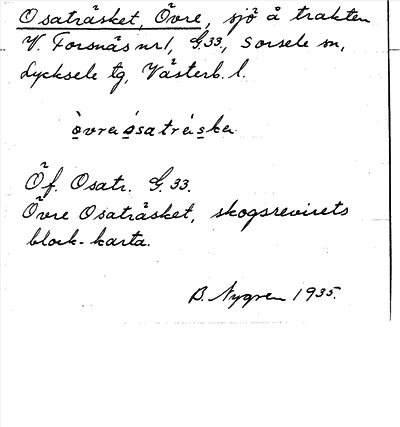 Osaträsket, Övre, sjö å trakten
V. Forsnäs nr 1, G.33., Sorsele sn,
Lycksele tg, Västerb. l.
Öf. Osatr. G.33.
Övre Osaträsket, skogsrevirets
block-karta.
B. Nygren 1935.